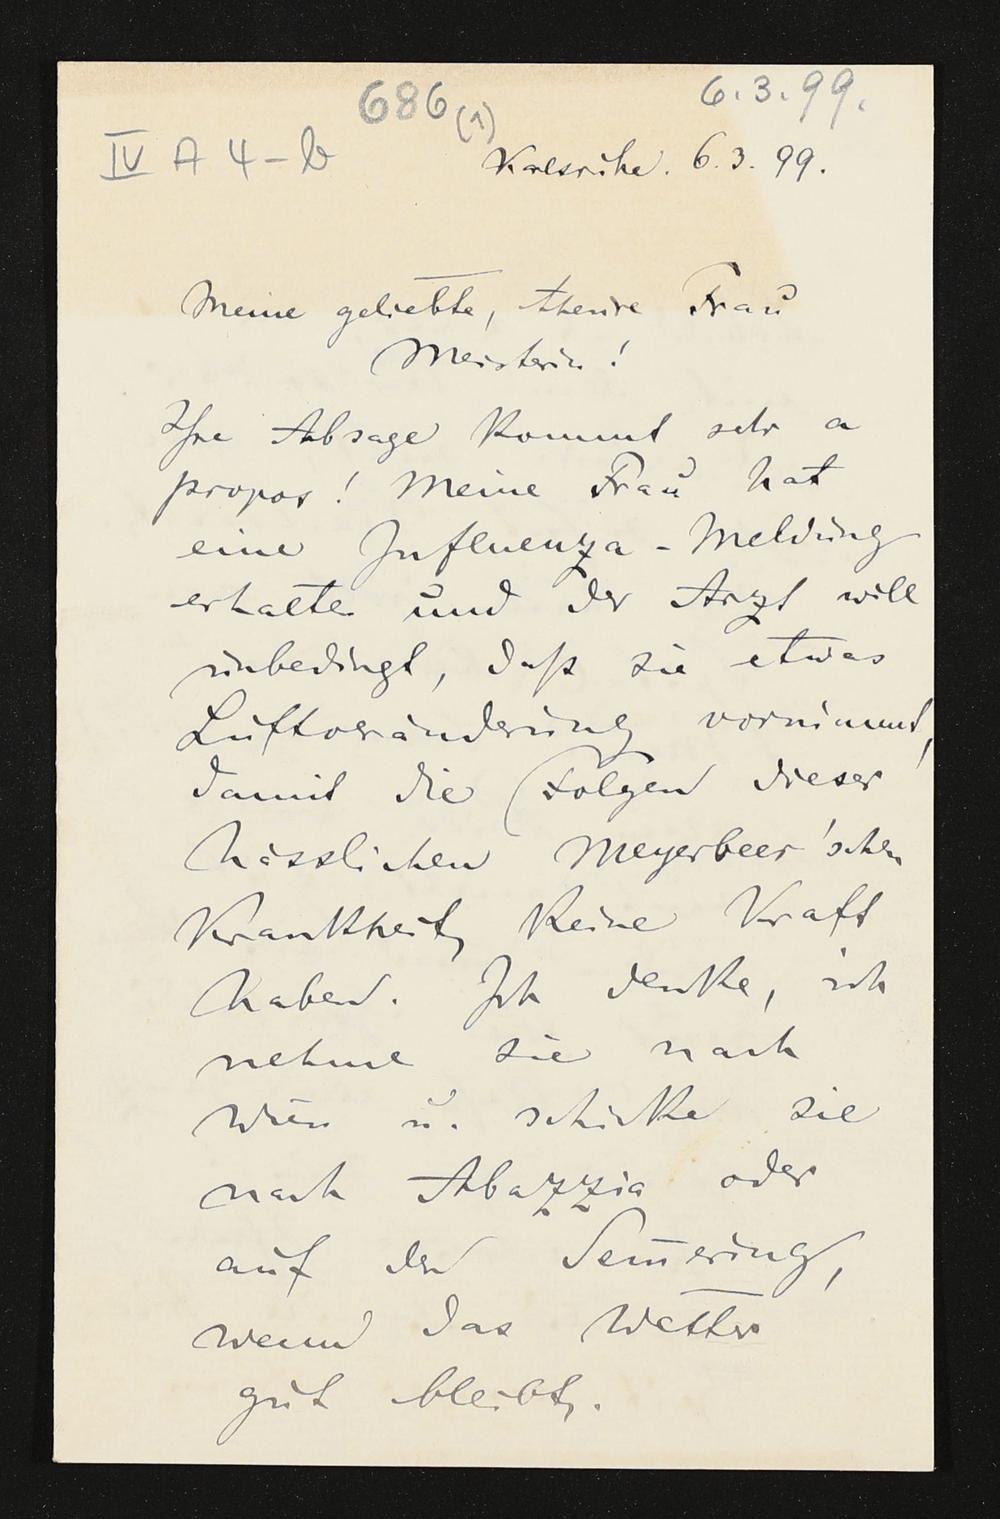 686 (1) 6.3.99.
IV A 4-b
Karlsruhe. 6.3.99.
Meine geliebte, theure Frau
Meisterin!
Ihre Absage kommt sehr a
propos! Meine Frau hat
eine Influenza-Meldung
erhalten und der Arzt will
unbedingt, daß sie etwas
Luftveränderung vornimmt,
damit die Folgen dieser
hässlichen Meyerbeer'schen
Krankheit, keine Kraft
haben. Ich denke, ich
nehme sie nach
Wien u. schicke sie
nach Abazzia oder
auf den Sem̄ering,
wenn das Wetter
gut bleibt.